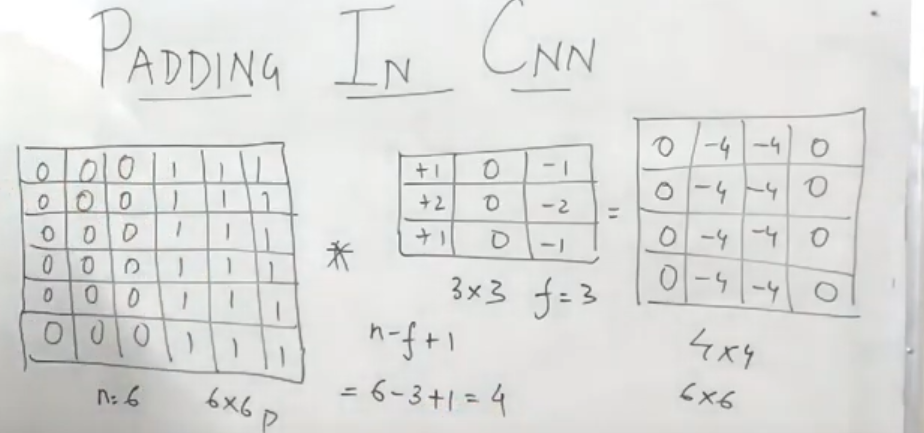 PADDING IN CNN
0 0 0 1 1 1
0 0 0 1 1 1
0 0 0 1 1 1
0 0 0 1 1 1
0 0 0 1 1 1
0 0 0 1 1 1
n=6 6×6 p
*
+1 0 -1
+2 0 -2
+1 0 -1
3×3 f=3
n-f+1
= 6-3+1=4
=
0 -4 -4 0
0 -4 -4 0
0 -4 -4 0
0 -4 -4 0
4×4
6×6